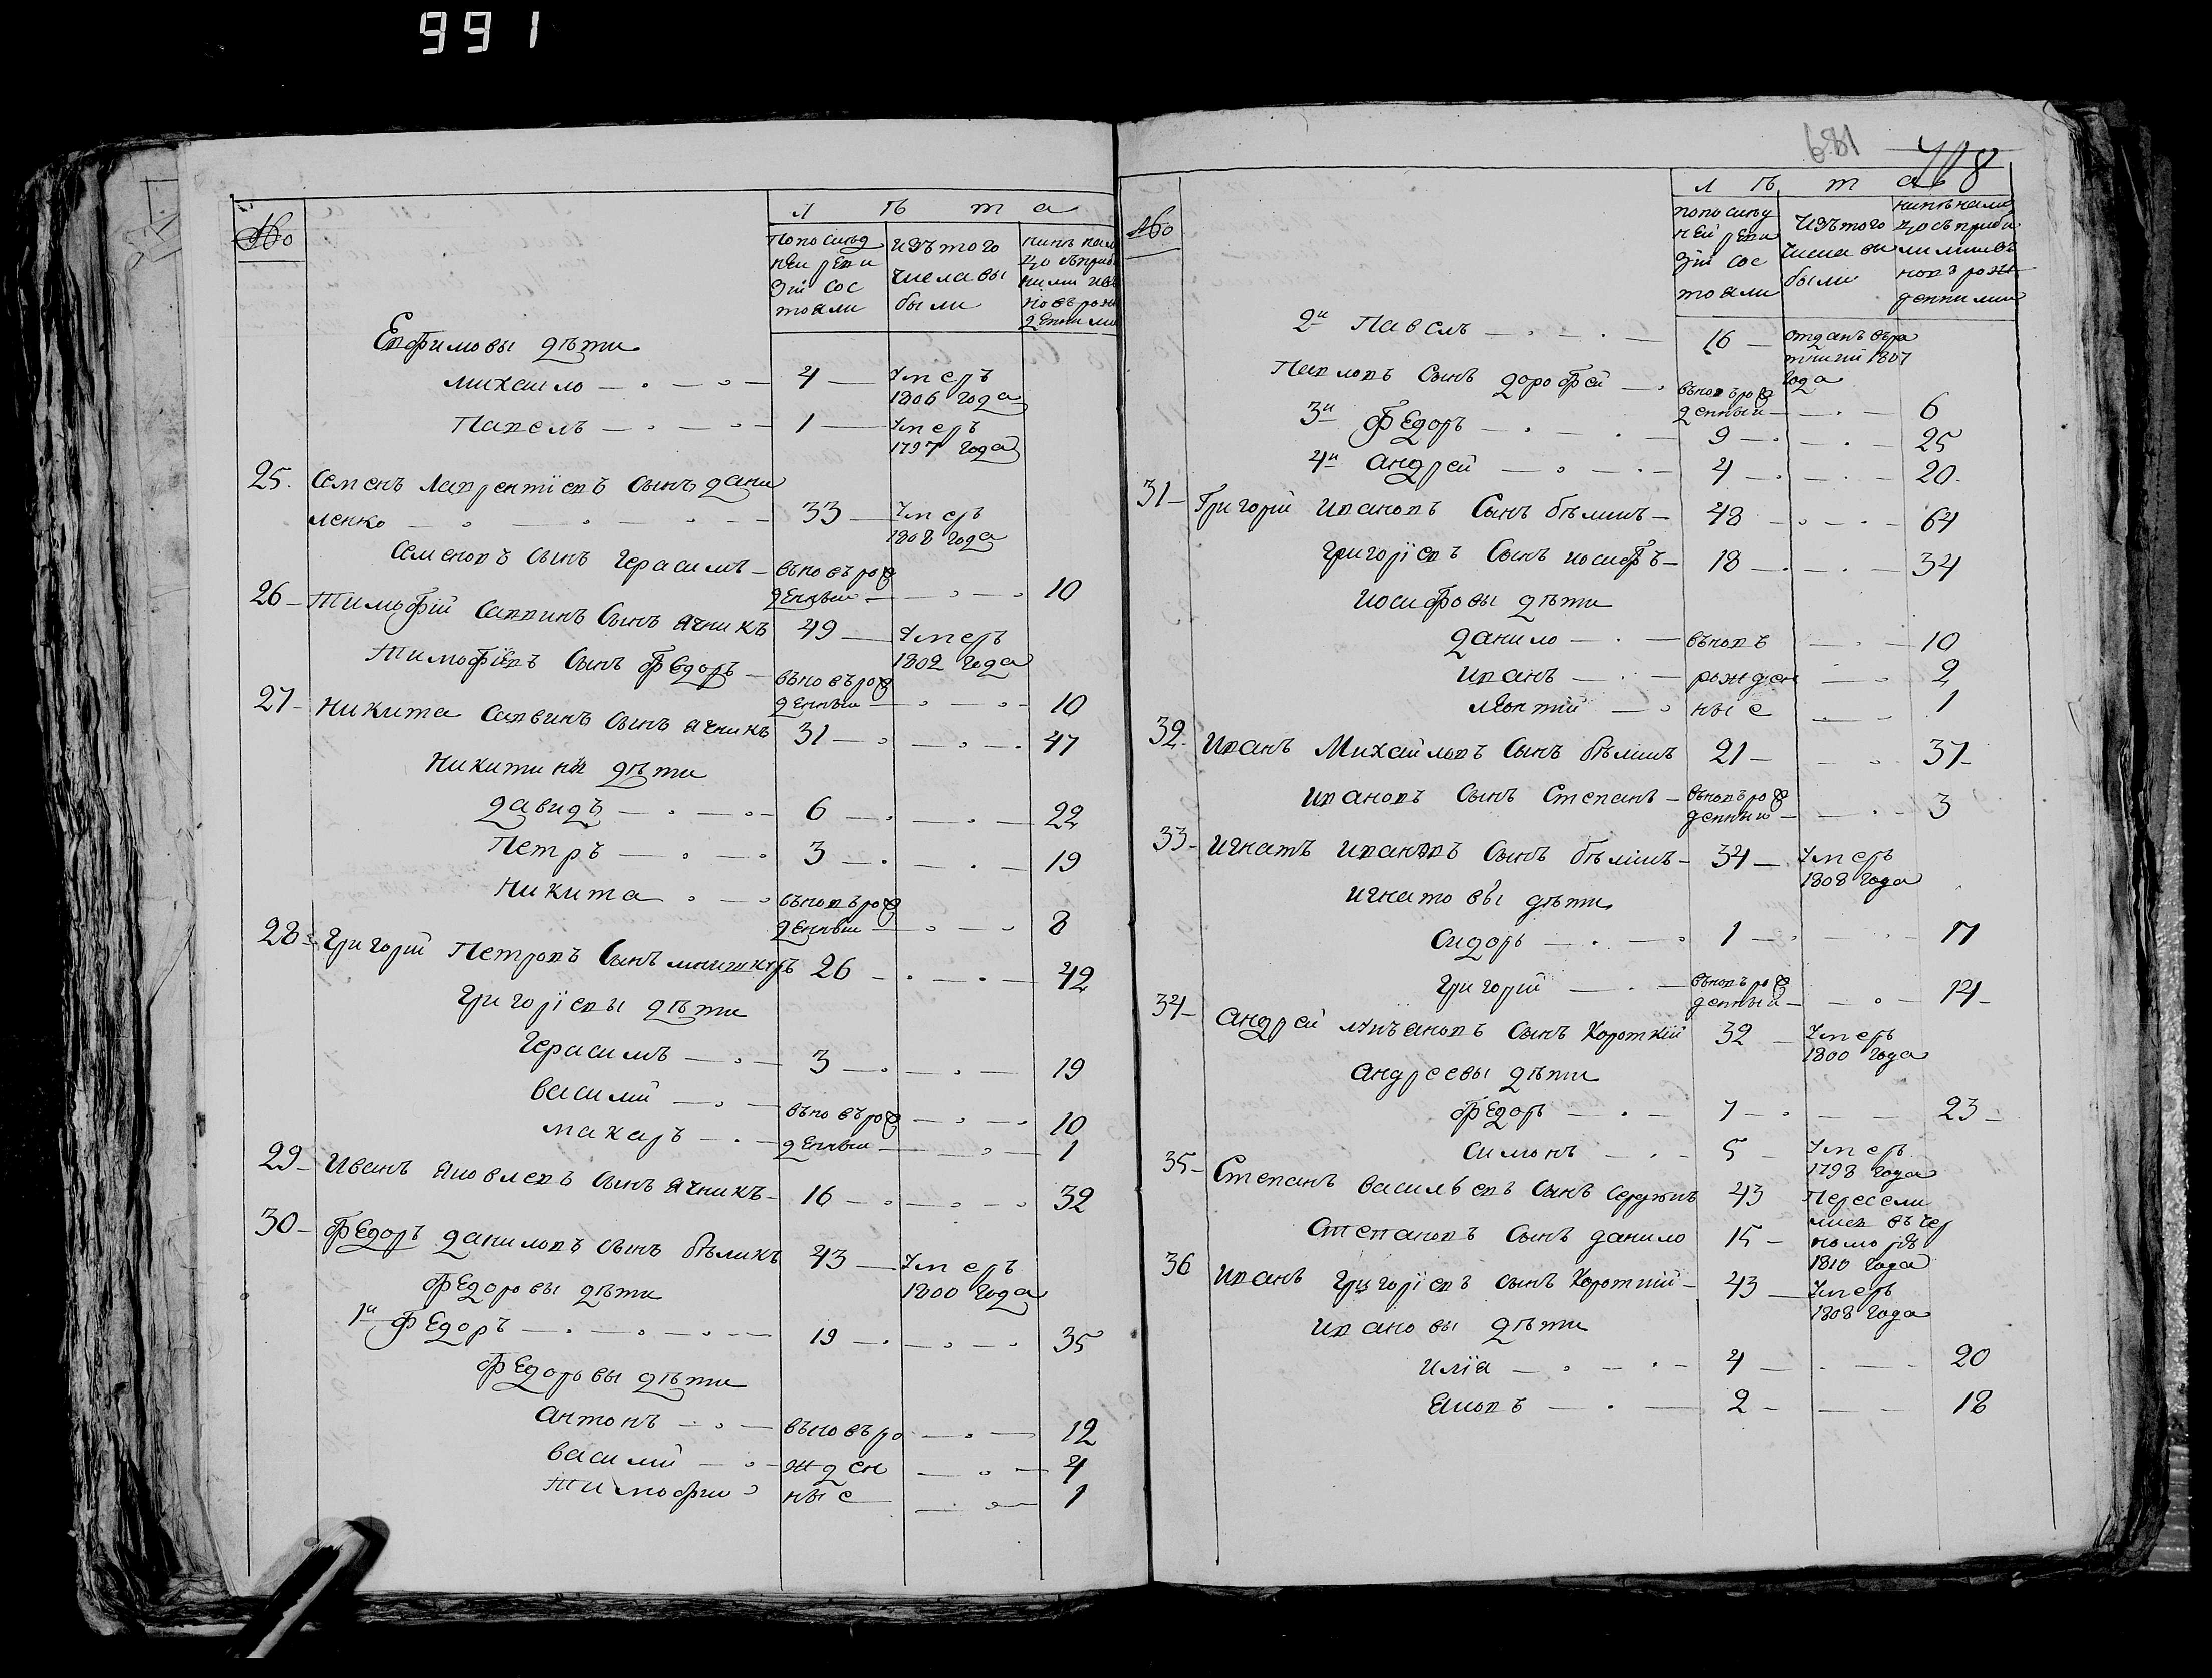 991
№
Л ѣ т а
По послѣд
ней реви
зіи сос
тояли
изъ того
числа вы
были
нынѣ нали
цо съ приб
Евфимовы дѣти
Михайло — 4 — умеръ
1806 года
Павелъ — 1 — умеръ
1797 года
25. Семенъ Лаврентіевъ сынъ дани
ленко — 33 — умеръ
1808 года
Семеновъ сынъ Герасимъ — вновь рож
денный — 10
26 – Тимофій Саввинъ сынъ Ячникъ 49 — умеръ
1802 года
Тимофіевъ сынъ Федоръ — вновь рож
денный — 10
27 – Никита Саввинъ сынъ Ячникъ 31 — 47
Никитины дѣти
Давидъ — 6 — 22
Петръ — 3 — 19
Никита — вновь рож
денный — 8
28 Григорій Петровъ сынъ 26 — 42
Григоріевы дѣти
Герасимъ — 3 — 19
Василій — вновь рож — 10
Макаръ — денный — 1
29 – Иванъ Яковлевъ сынъ Ячникъ – 16 — 32
30 – Федоръ Даниловъ сынъ бѣликъ 43 — умеръ
1800 года
Федоровы дѣти
1й Федоръ — 19 — 35
Федоровы дѣти
Антонъ — вновь ро — 12
Василій — жден — 4
Тимофій ные — 1
681 708
№
Л ѣ т а
по послѣд
ней реви
зіи сос
тояли
изъ того
числа вы
были
нынѣ нали
цо съ приби
новъ рож
денними
2й Павелъ — 16 — отданъ въ ра
тники 1807
года
Павловъ сынъ Дорофей — вновь рож
денный — 6
3й Федоръ — 9 — 25
4й Андрей — 4 — 20
31 – Григорій Ивановъ сынъ бѣликъ – 48 — 64
Григоріевъ сынъ Иосифъ – 18 — 34
Иосифовы дѣти
Данило — вновь — 10
Иванъ — рожден — 2
Леонтій — ные — 1
32. Иванъ Михайловъ сынъ бѣликъ 21 — 37
Ивановъ сынъ Степанъ – вновь рож
денный — 3
33 – Игнатъ Ивановъ сынъ бѣликъ – 34 — умеръ
1808 года
Игнатовы дѣти
Сидоръ — 1 — 17
Григорій — вновь рож
денный — 14
34 – Андрей сынъ Короткій 32 — умеръ
1800 года
Андреевы дѣти
Федоръ — 7 — 23
Симонъ — 5 — умеръ
1798 года
35 – Степанъ Васильевъ сынъ 43 Пересели
Степановъ сынъ Данило 15 – лись въ чер
номорію
1810 года
36 Иванъ Григоріевъ сынъ Короткій – 43 — умеръ
1808 года
Ивановы дѣти
Илія — 4 — 20
Яковъ — 2 — 18